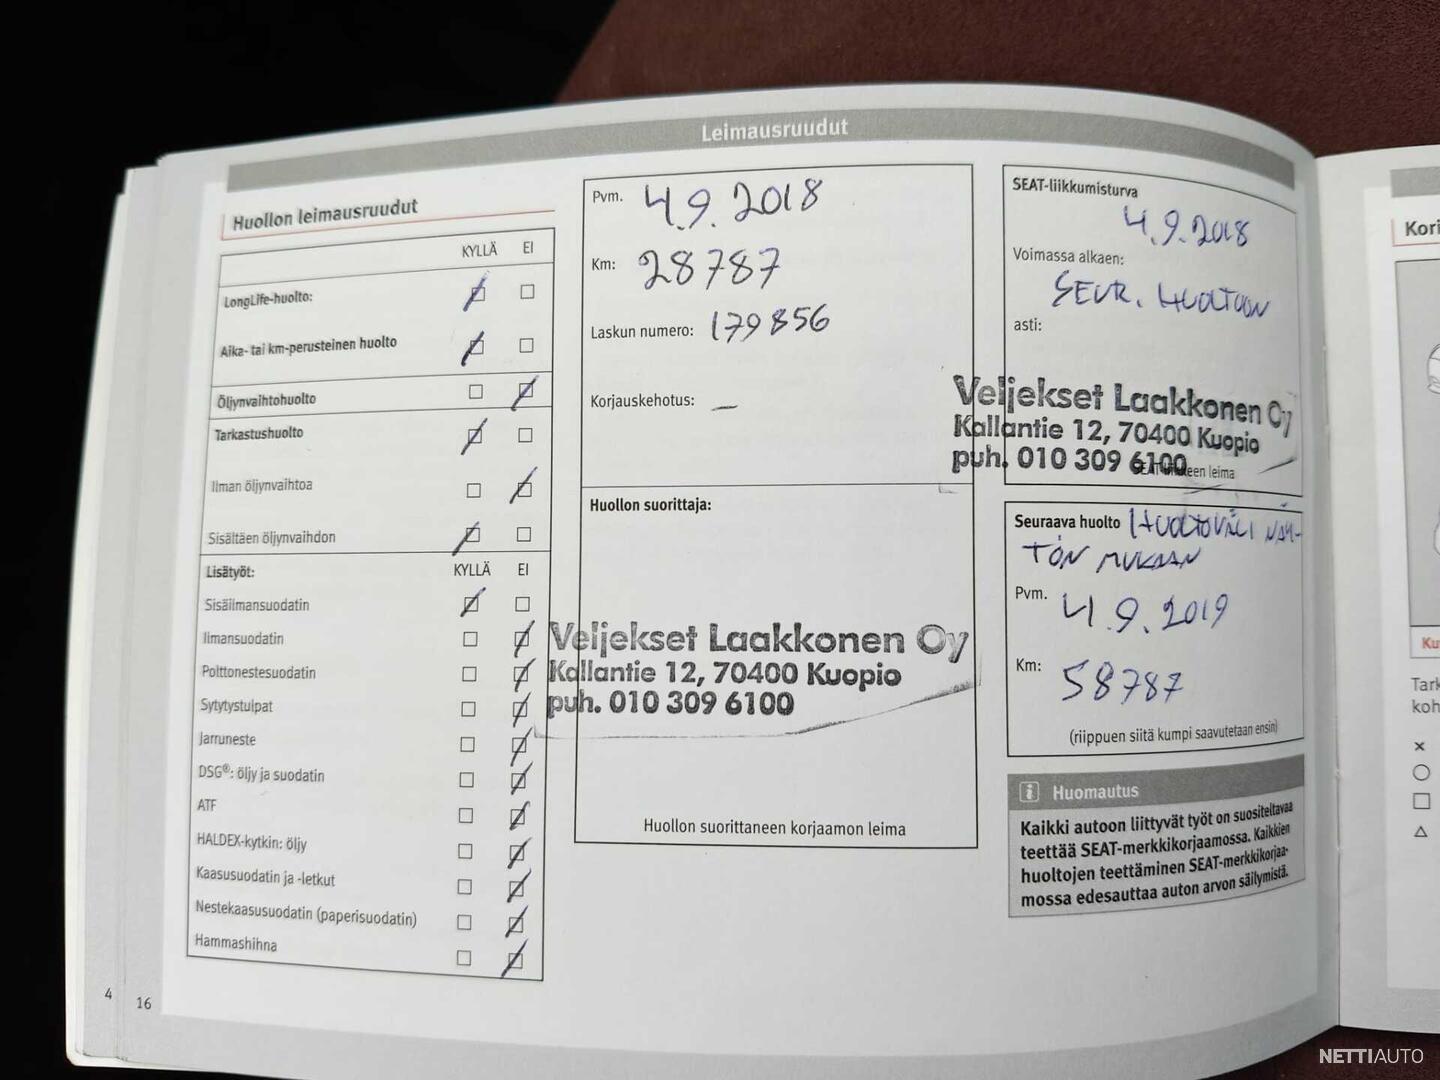 Leimausruudut
Huollon leimausruudut
KYLLÄ EI
LongLife-huolto:
Aika- tai km-perusteinen huolto
Öljynvaihtohuolto
Tarkastushuolto
Ilman öljynvaihtoa
Sisältäen öljynvaihdon
Lisätyöt: KYLLÄ EI
Sisäilmansuodatin
Ilmansuodatin
Polttonestesuodatin
Sytytystulpat
Jarruneste
DSG®: öljy ja suodatin
ATF
HALDEX-kytkin: öljy
Kaasusuodatin ja -letkut
Nestekaasusuodatin (paperisuodatin)
Hammashihna
4 16
Pvm. 4.9.2018
Km: 28787
Laskun numero: 179856
Korjauskehotus: —
Huollon suorittaja:
Veljekset Laakkonen Oy
Kallantie 12, 70400 Kuopio
puh. 010 309 6100
Huollon suorittaneen korjaamon leima
SEAT-liikkumisturva
4.9.2018
Voimassa alkaen:
SEUR. HUOLTOON
asti:
Veljekset Laakkonen Oy
Kallantie 12, 70400 Kuopio
puh. 010 309 6100
leima
Seuraava huolto HUOLTOVÄLI NÄY-
TÖN MUKAAN
Pvm. 4.9.2019
Km: 58787
(riippuen siitä kumpi saavutetaan ensin)
i Huomautus
Kaikki autoon liittyvät työt on suositeltavaa
teettää SEAT-merkkikorjaamossa. Kaikkien
huoltojen teettäminen SEAT-merkkikorjaa-
mossa edesauttaa auton arvon säilymistä.
Kori
Ku
Tark
koh
NETTIAUTO